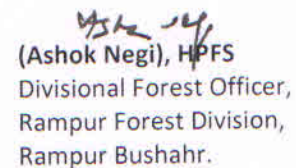 (Ashok Negi), HPFS
Divisional Forest Officer,
Rampur Forest Division,
Rampur Bushahr.